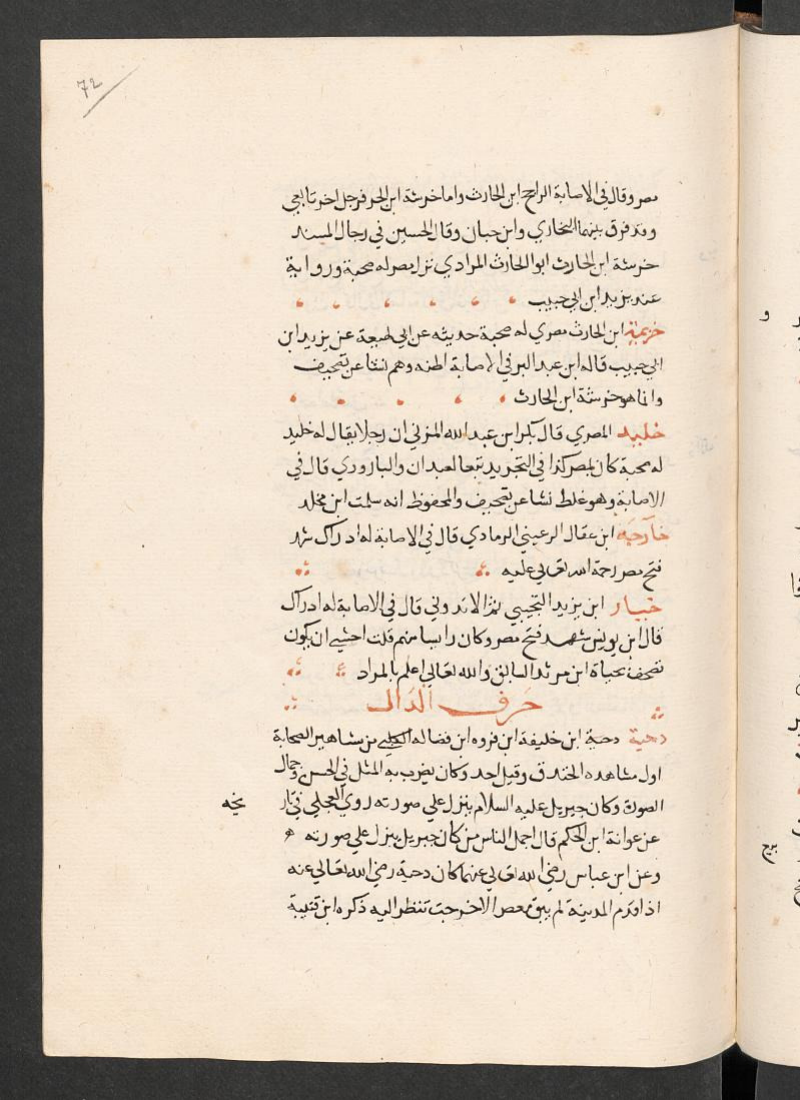 72
مصر وقال في الاصابة الراجح ابن الحارث واما خرشة ابن الحر فرجل اخر تابعي
وقد فرق بينهما البخاري وابن حبان وقال الحسين في رجال المسند
خرشة ابن الحارث ابو الحارث المرادي نزل مصر له صحبة ورواية
عنه يزيد ابن ابي حبيب
خزيمة ابن الحارث مصري له صحبة حديثه عن ابي لهيعة عن يزيد ابن
ابي حبيب قاله ابن عبد البر في الاصابة اظنه وهم نشا عن تصحيف
وانما هو خرشة ابن الحارث
خليد المصري قال بكر ابن عبد الله المزني ان رجلا يقال له خليد
له صحبة كان بمصر كذا في التجريد تبعا لعبدان والباروردي قال في
الاصابة وهو غلط نشا عن تحريف والمحفوظ انه سلمت ابن مخلد
خارجة ابن عقال الرعيني الرمادي قال في الاصابة له ادراك شهد
فتح مصر رحمة الله تعالى عليه
خيار ابن يزيد التجيبي قال في الاصابة له ادراك
قال ابن يونس شهد فتح مصر وكان راسا منهم قلت اخشى ان يكون
تصحف بحياة ابن مرثد السابق والله تعالى اعلم بالمراد
حرف الدال
دحية دحية ابن خليفة ابن فروه ابن فضاله الكلبي من مشاهير الصحابة
اول مشاهده الخندق وقيل احد وكان يضرب به المثل في الحسن وجمال
الصورة وكان جبريل عليه السلام ينزل علي صورته روي العجلي في
عن عوانة ابن الحكم قال اجمل الناس من كان جبريل ينزل علي صورته
وعن ابن عباس رضي الله تعالى عنهما كان دحية رضي الله تعالى عنه
اذا قدم المدينة لم يبق معصر الا خرجت تنظر اليه ذكره ابن قتيبة